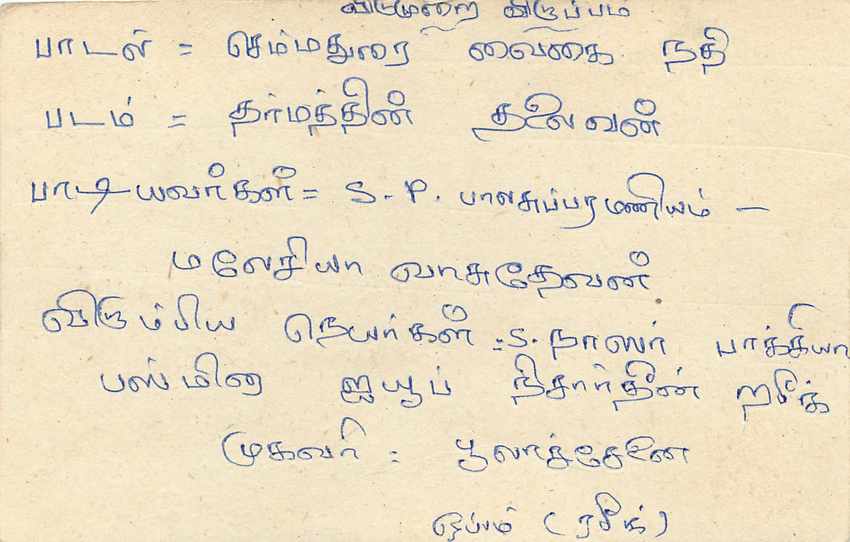 விடுமுறை விருப்பம்
பாடல் = செம்மதுரை வைகை நதி
படம் = தர்மத்தின் தலைவன்
பாடியவர்கள் = S.P. பாலசுப்பரமணியம் -
மலேசியா வாசுதேவன்
விரும்பிய நெயர்கள் :- S. நாஸர் பாக்கியா
பஸ்மினா ஐயூப் நிசார்தீன் றசீக்
முகவரி : பூலாச்சேனை
ஒப்பம் (ரசீக்)